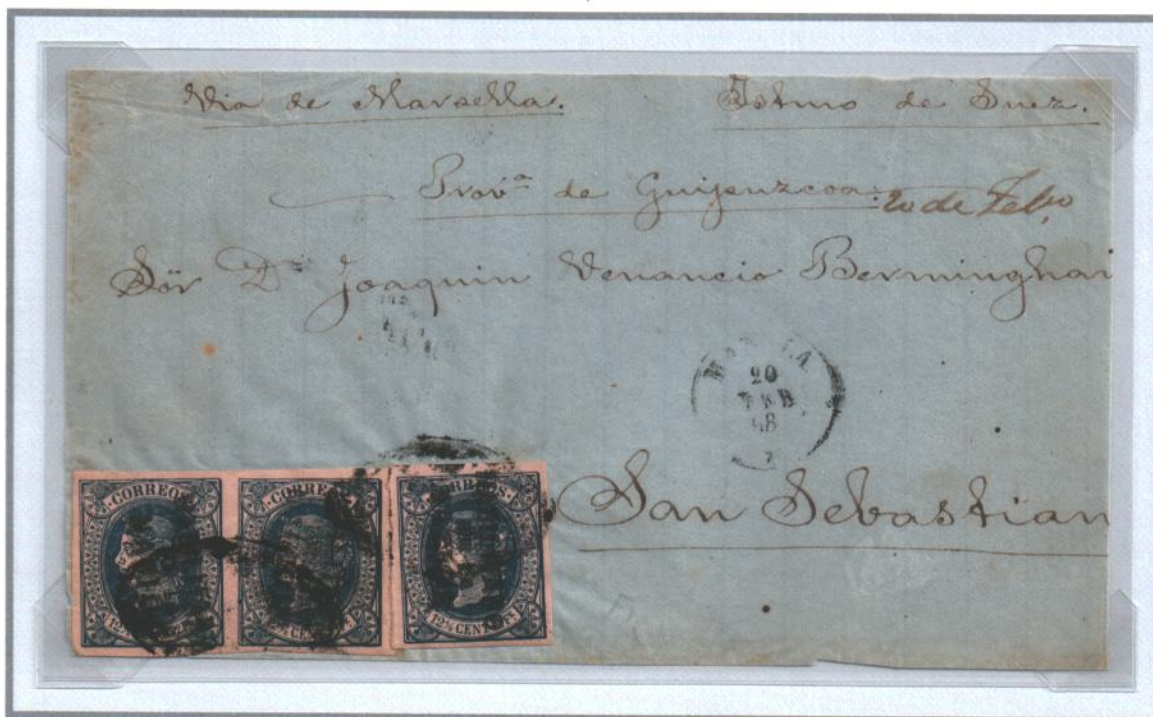 Via de Marsella. Istmo de Suez.
Provª de Guipuzcoa. 20 de Febo
Sör Dn Joaquin Venancio Bermingha
MANILA
20
FEB
68
San Sebastian
CORREOS CORREOS CORREOS
12⁴⁄₈ CENT 12⁴⁄₈ CENT 12⁴⁄₈ CENT